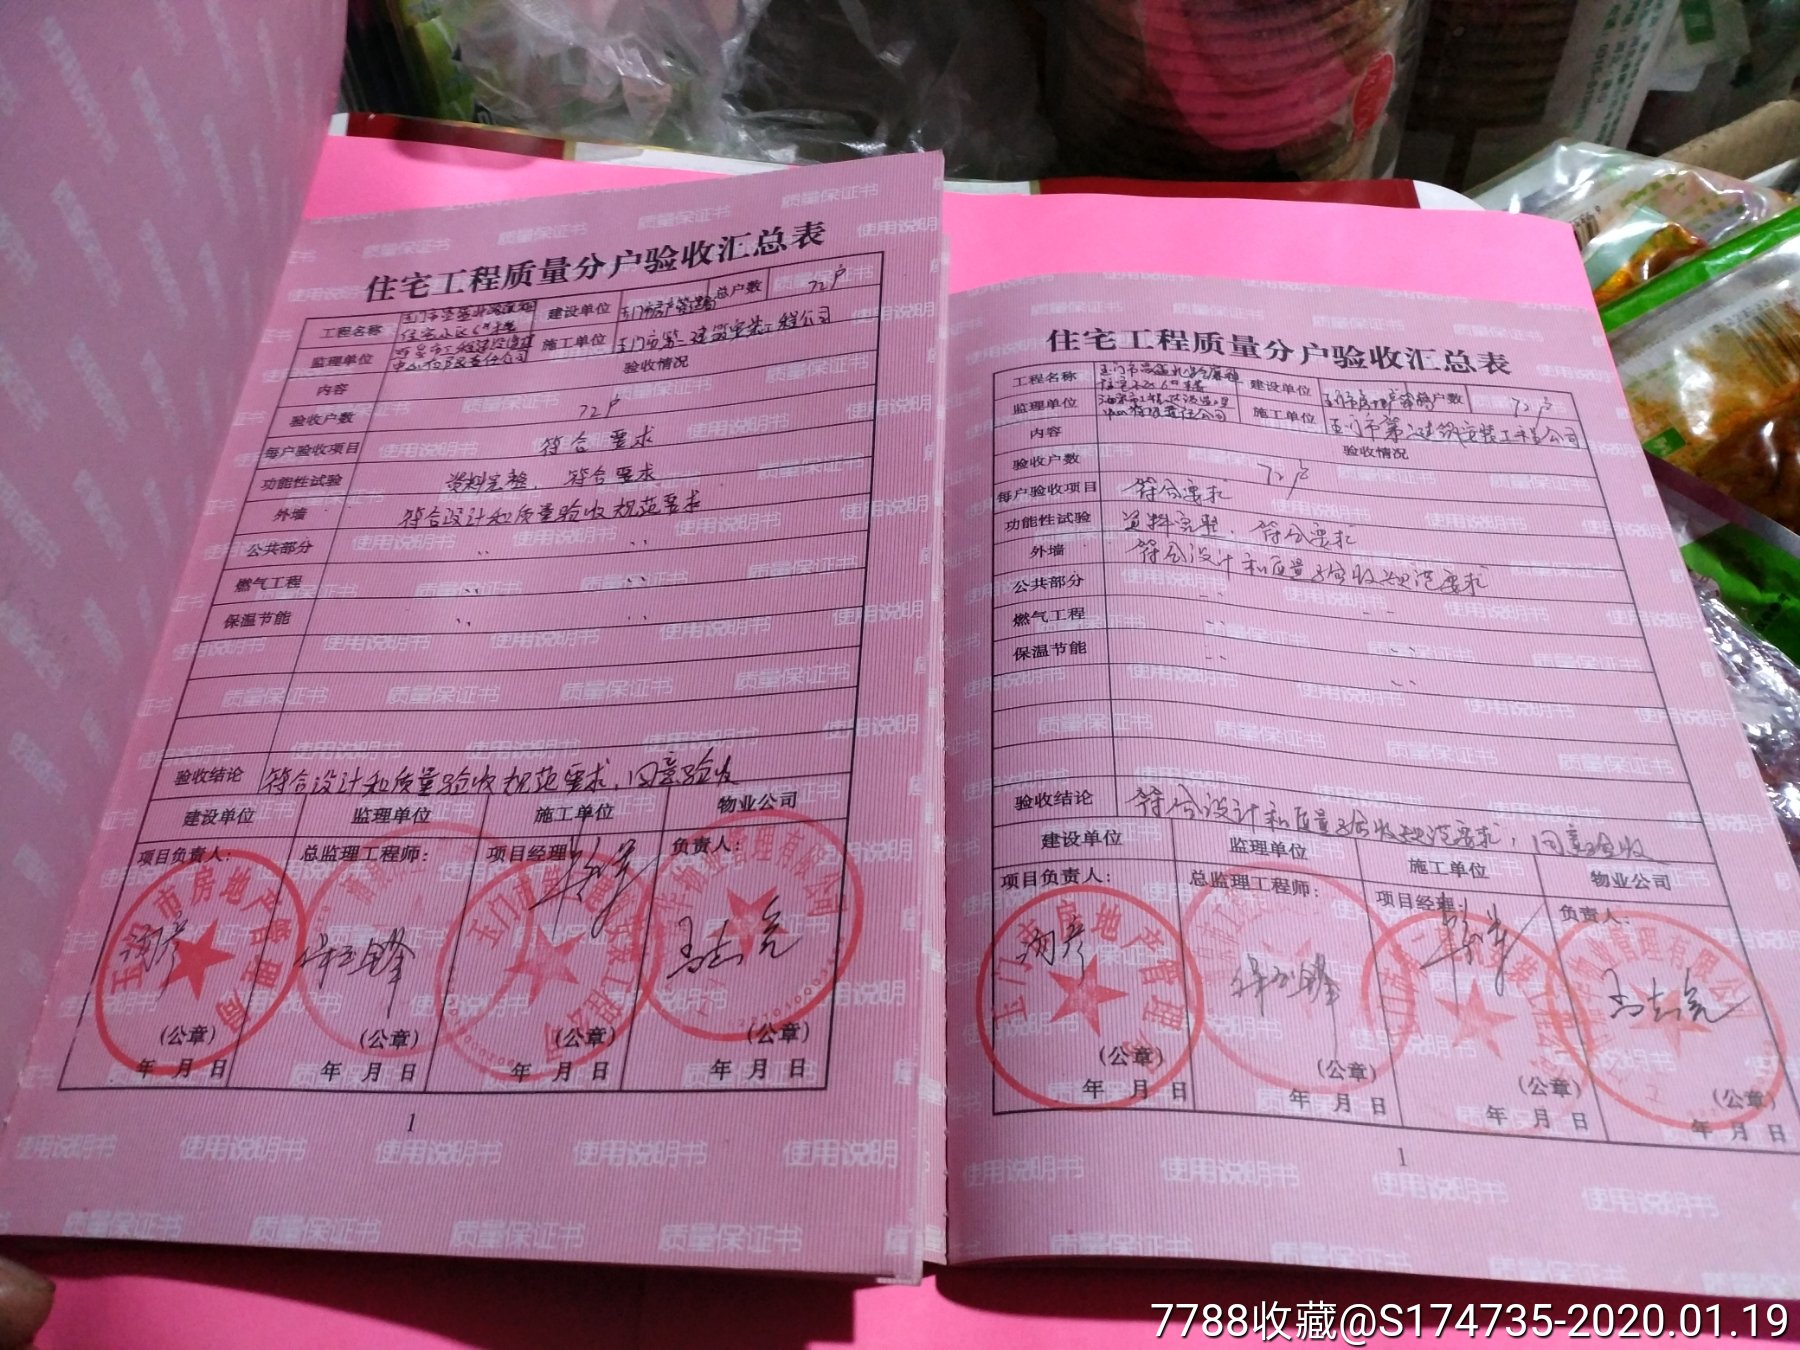 住宅工程质量分户验收汇总表
工程名称
住宅小区6#楼
建设单位
总户数
72户
监理单位
施工单位
玉门市第二建筑安装工程公司
内容
验收情况
验收户数
72户
每户验收项目
符合要求
功能性试验
资料完整、符合要求
外墙
符合设计和质量验收规范要求
公共部分
燃气工程
保温节能
验收结论
符合设计和质量验收规范要求,同意验收
建设单位
监理单位
施工单位
物业公司
项目负责人:
总监理工程师:
项目经理:
负责人:
玉门市房地产管理局
(公章)
(公章)
(公章)
(公章)
年 月 日
年 月 日
年 月 日
年 月 日
1
住宅工程质量分户验收汇总表
工程名称
住宅小区6#楼
建设单位
户数
72户
监理单位
施工单位
玉门市第二建筑安装工程公司
内容
验收情况
验收户数
72户
每户验收项目
符合要求
功能性试验
资料完整、符合要求
外墙
符合设计和质量验收规范要求
公共部分
燃气工程
保温节能
验收结论
符合设计和质量验收规范要求,同意验收
建设单位
监理单位
施工单位
物业公司
项目负责人:
总监理工程师:
项目经理:
负责人:
玉门市房地产管理局
(公章)
(公章)
(公章)
(公章)
年 月 日
年 月 日
年 月 日
年 月 日
1
质量保证书
使用说明书
7788收藏@S174735-2020.01.19